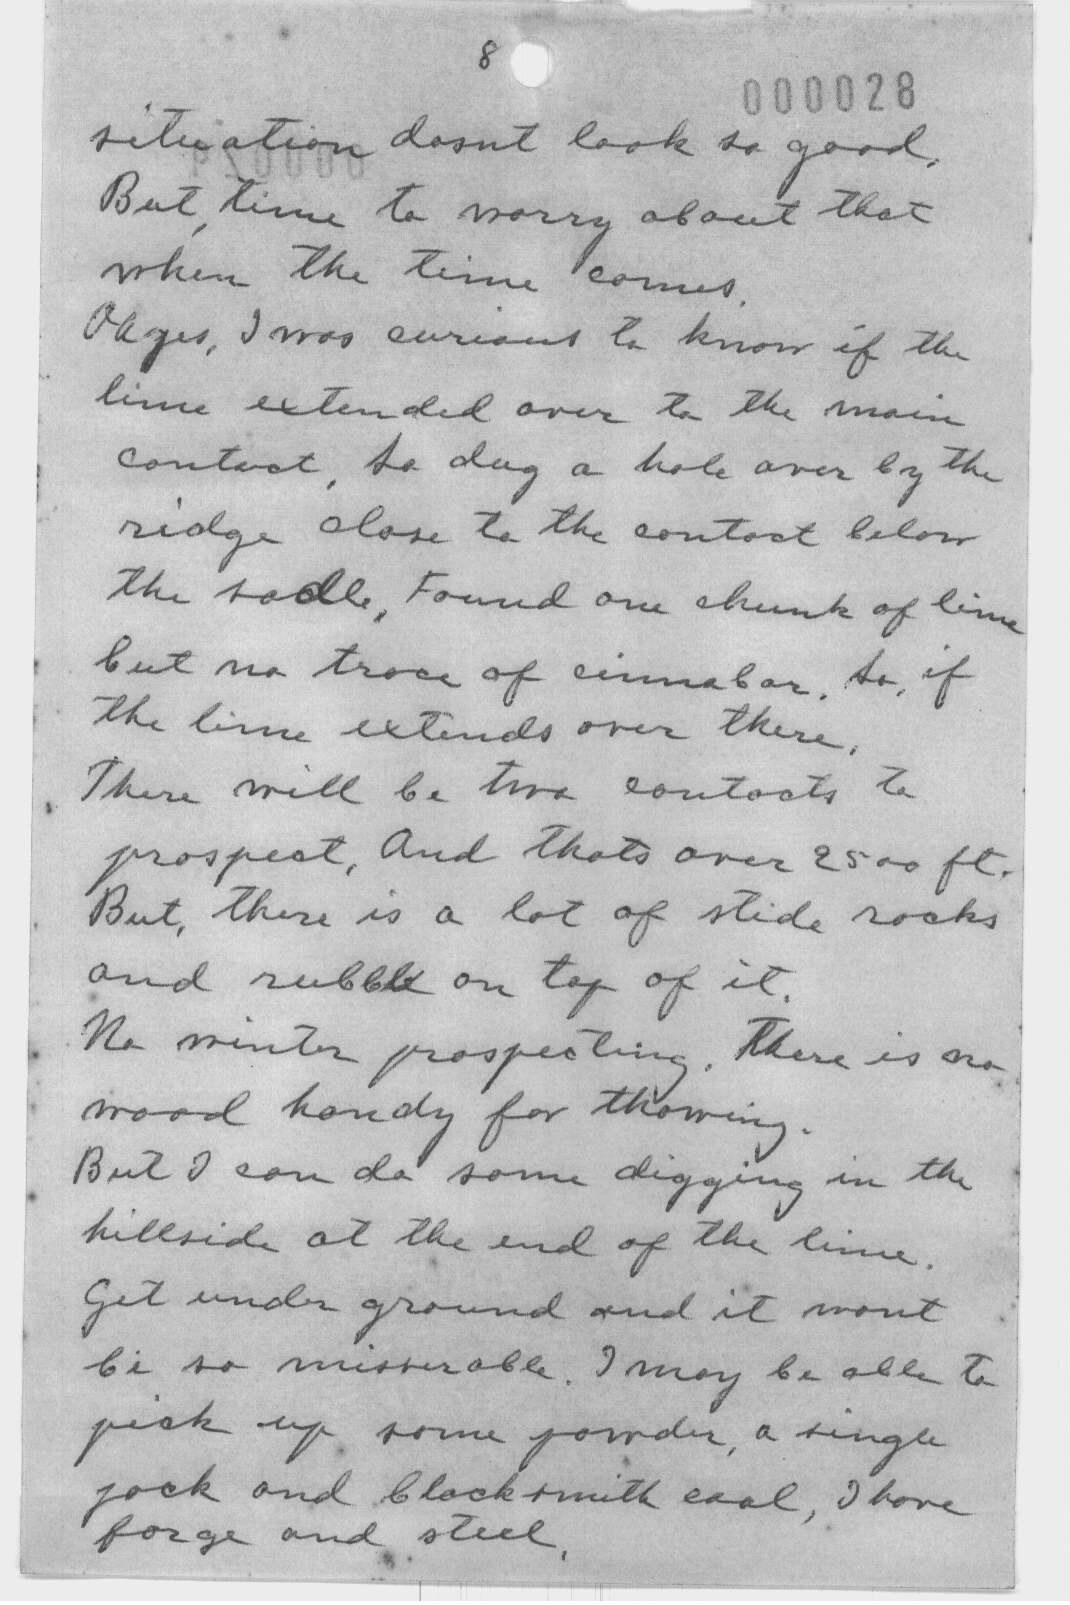 8
000028
situation dosnt look so good.
But, time to worry about that
when the time comes.
Oh yes, I was curious to know if the
lime extended over to the main
contact, so dug a hole over by the
ridge close to the contact below
the sadle, Found one chunk of lime
but no trace of cinnabar. So, if
the lime extends over there,
There will be two contacts to
prospect, And thats over 2500 ft.
But, there is a lot of slide rocks
and rubble on top of it.
No winter prospecting. There is no
wood handy for thawing.
But I can do some digging in the
hillside at the end of the lime.
Get under ground and it wont
be so misserable. I may be able to
pick up some powder, a single
jack and blacksmith coal, I have
forge and steel.